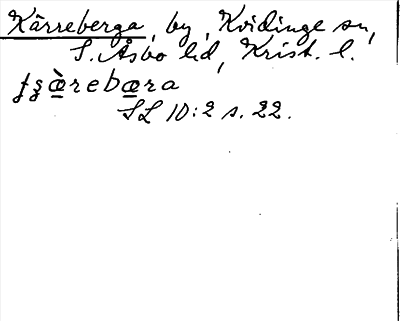 Kärreberga, by, Kvidinge sn,
S. Åsbo hd, Krist. l.
ɟʒæ̀rebæra
SL 10:2 s. 22.